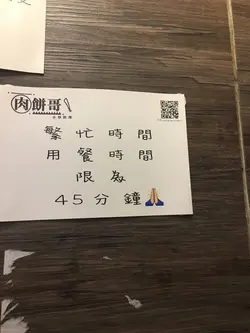 肉餅哥
繁忙時間
用餐時間
限為
45分鐘🙏